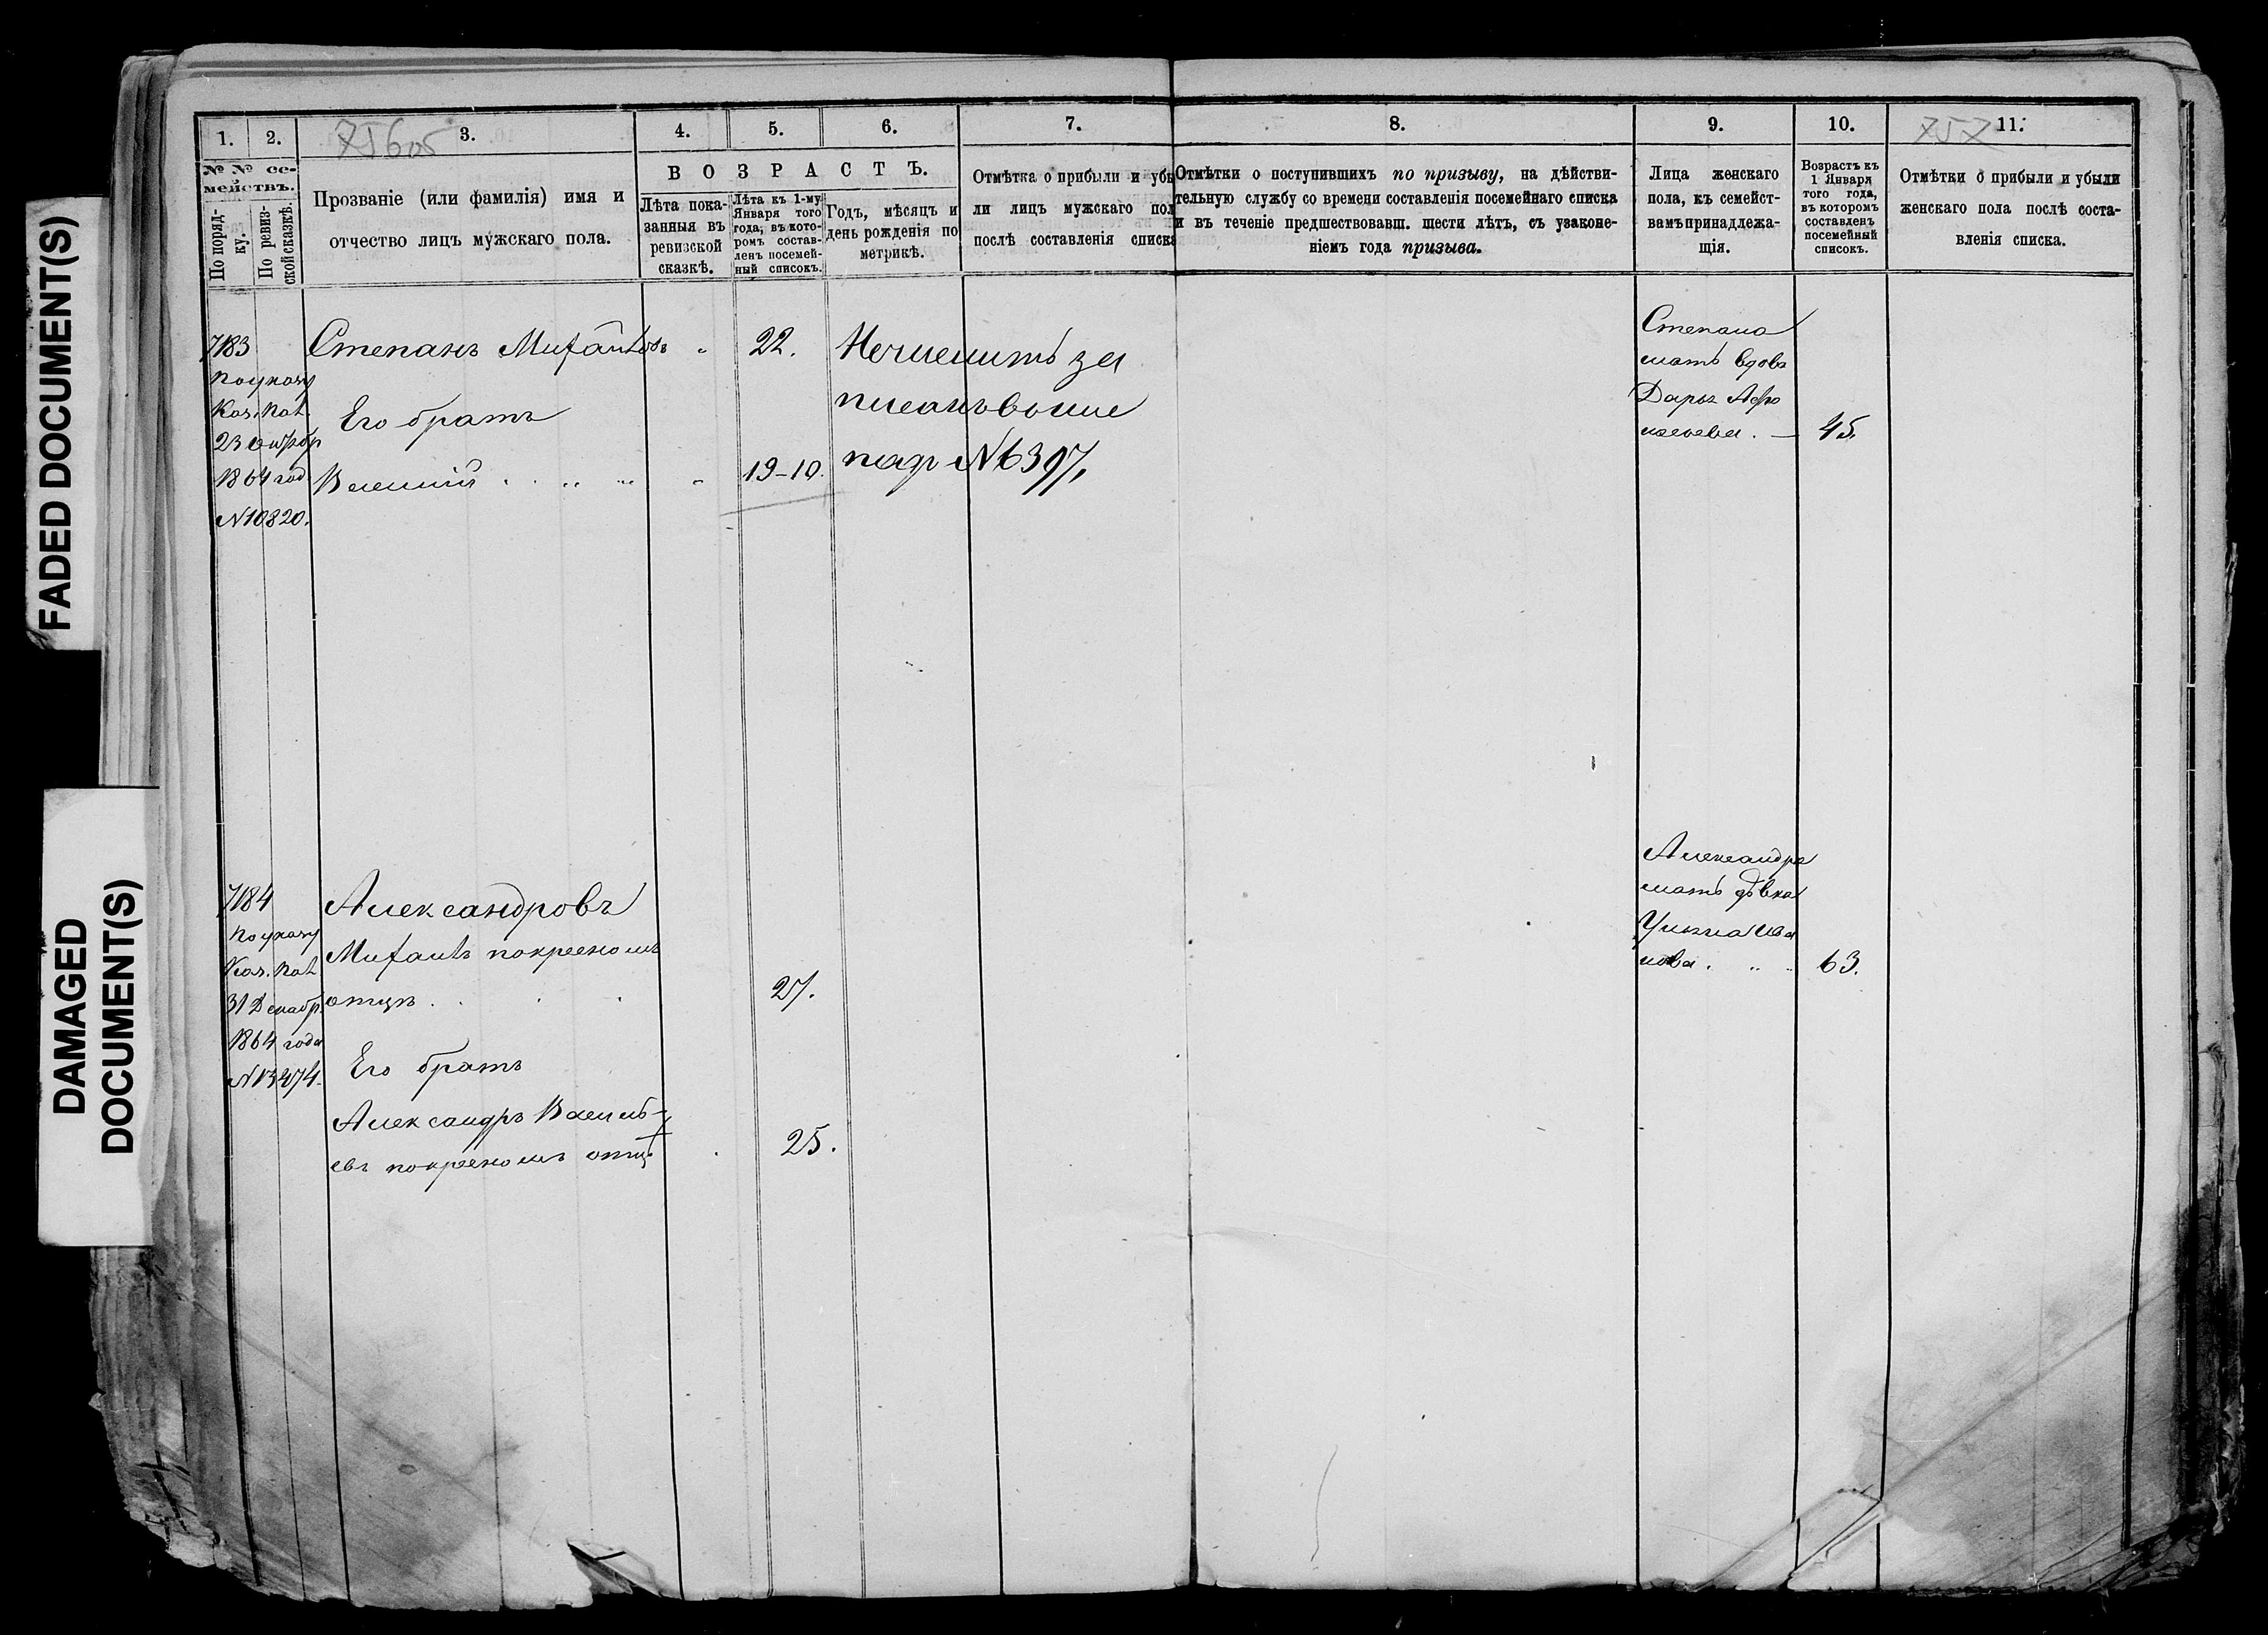 FADED DOCUMENT(S)
DAMAGED
DOCUMENT(S)
1. 2. 3. 4. 5. 6. 7. 8. 9. 10. 11.
757
№ № се-
мействъ.
По поряд-
ку.
По ревиз-
ской сказкѣ.
Прозваніе (или фамилія) имя и
отчество лицъ мужскаго пола.
ВОЗРАСТЪ.
Лѣта пока-
занныя въ
ревизской
сказкѣ.
Лѣта къ 1-му
Января того
года, въ кото-
ромъ состав-
ленъ посемей-
ный списокъ.
Годъ, мѣсяцъ и
день рожденія по
метрикѣ.
Отмѣтка о прибыли и убы
ли лицъ мужскаго пол
послѣ составленія списка
Отмѣтки о поступившихъ по призыву, на дѣйстви-
тельную службу со времени составленія посемейнаго списка
и въ теченіе предшествовавш. шести лѣтъ, съ узаконе-
ніемъ года призыва.
Лица женскаго
пола, къ семейст-
вамъ принадлежа-
щія.
Возрастъ къ
1 Января
того года,
въ которомъ
составленъ
посемейный
списокъ.
Отмѣтки о прибыли и убыли
женскаго пола послѣ соста-
вленія списка.
7183
по указу
Каз. Пал.
23 октябр
1864 год
N 10820.
Степанъ
22.
Его братъ
Василий
19-10.
Нечислить за
писанъ выше
под N 6397,
Степана
мать вдова
Дарья Афо
насьева. — 45.
7184
по указу
Каз. Пал
31 Декабр.
1864 года
N 13474.
Александровъ
по крестному
отцу 27.
Его братъ
Александръ Василь-
евъ по крестному отцу 25.
Александра
мать дѣвка
Ульяна Ива
нова. 63.